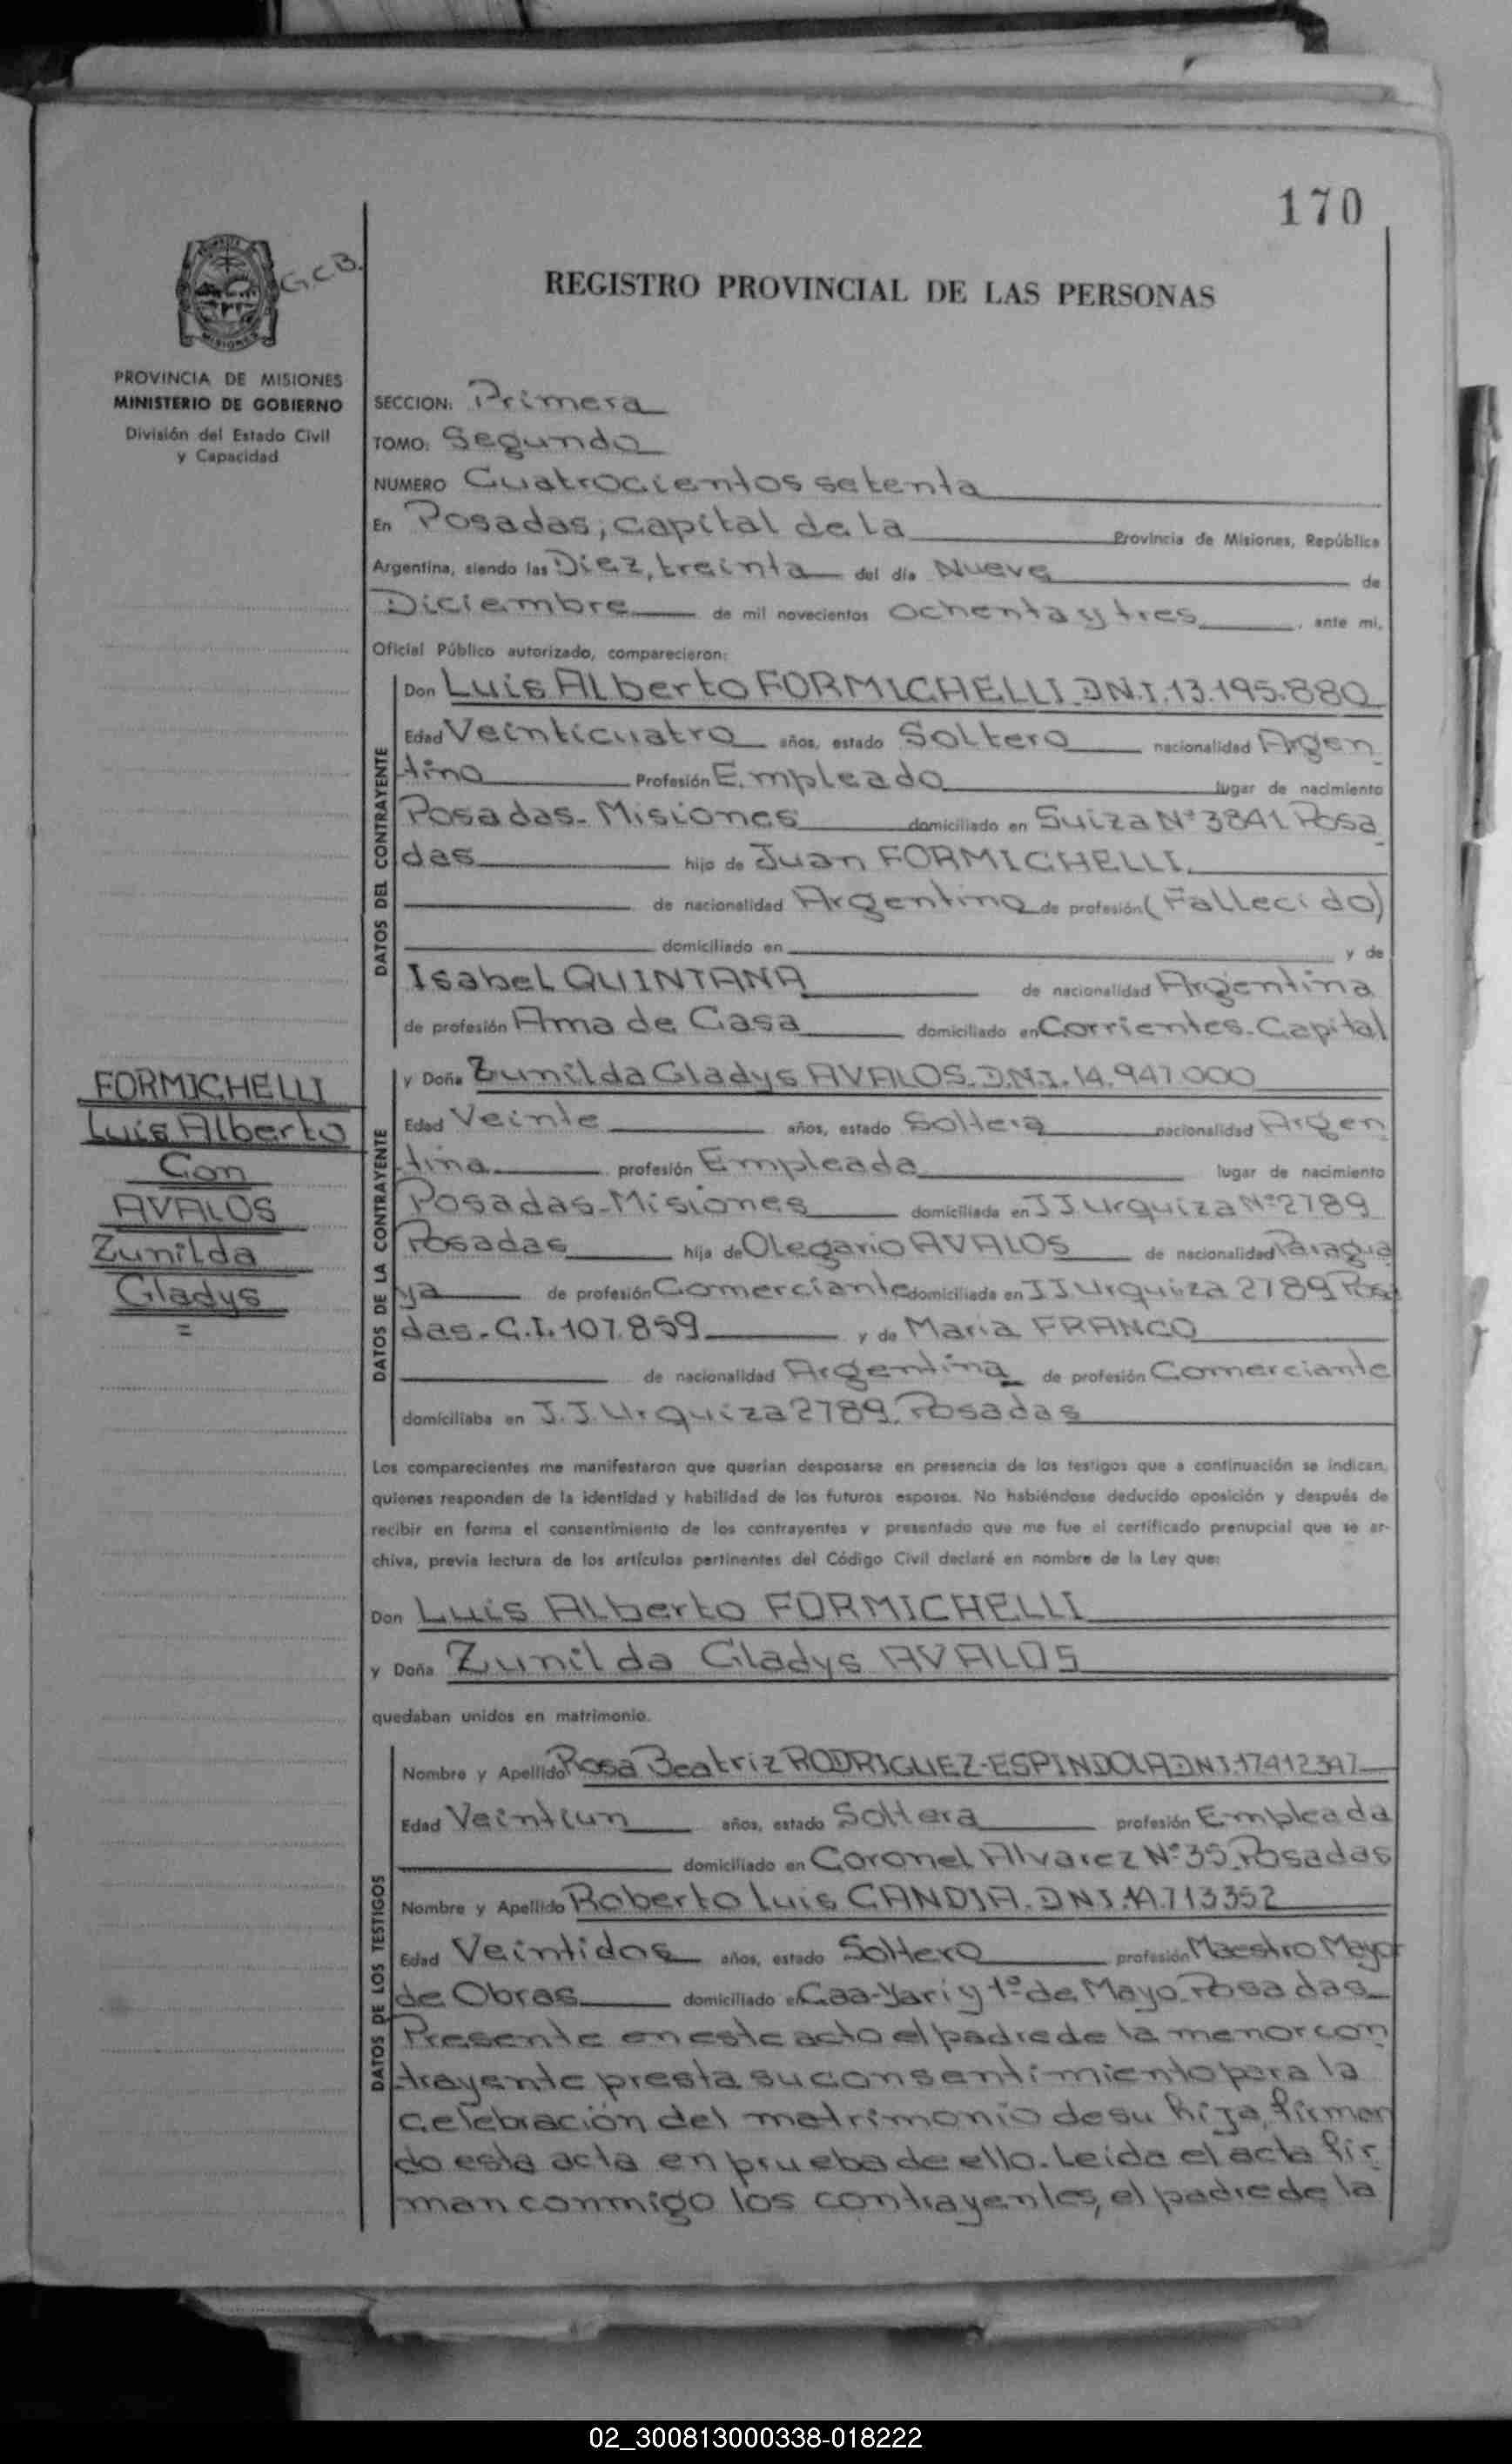 170
G.C.B.
REGISTRO PROVINCIAL DE LAS PERSONAS
MISIONES
PROVINCIA DE MISIONES
MINISTERIO DE GOBIERNO
División del Estado Civil
y Capacidad
SECCION: Primera
TOMO: Segundo
NUMERO Cuatrocientos setenta
En Posadas, capital de la Provincia de Misiones, República
Argentina, siendo las Diez, treinta del día Nueve de
Diciembre de mil novecientos ochenta y tres, ante mi,
Oficial Público autorizado, comparecieron:
DATOS DEL CONTRAYENTE
Don Luis Alberto FORMICHELLI D.N.I. 13.195.880
Edad Veinticuatro años, estado Soltero nacionalidad Argen
tino Profesión Empleado lugar de nacimiento
Posadas-Misiones domiciliado en Suiza N° 3841 Posa
das hijo de Juan FORMICHELLI
de nacionalidad Argentino de profesión (Fallecido)
domiciliado en y de
Isabel QUINTANA de nacionalidad Argentina
de profesión Ama de Casa domiciliado en Corrientes-Capital
FORMICHELLI
Luis Alberto
Con
AVALOS
Zunilda
Gladys
=
DATOS DE LA CONTRAYENTE
y Doña Zunilda Gladys AVALOS D.N.I. 14.947.000
Edad Veinte años, estado Soltera nacionalidad Argen
tina profesión Empleada lugar de nacimiento
Posadas-Misiones domiciliada en J J Urquiza N° 2789
Posadas hija de Olegario AVALOS de nacionalidad Paragua
ya de profesión Comerciante domiciliada en J J Urquiza 2789 Posa
das - C.I. 107.859 y de Maria FRANCO
de nacionalidad Argentina de profesión Comerciante
domiciliaba en J. J. Urquiza 2789. Posadas
Los comparecientes me manifestaron que querían desposarse en presencia de los testigos que a continuación se indican,
quienes responden de la identidad y habilidad de los futuros esposos. No habiéndose deducido oposición y después de
recibir en forma el consentimiento de los contrayentes y presentado que me fue el certificado prenupcial que se ar-
chiva, previa lectura de los artículos pertinentes del Código Civil declaré en nombre de la Ley que:
Don Luis Alberto FORMICHELLI
y Doña Zunilda Gladys AVALOS
quedaban unidos en matrimonio.
DATOS DE LOS TESTIGOS
Nombre y Apellido Rosa Beatriz RODRIGUEZ-ESPINDOLA DNI. 17412347
Edad Veintiun años, estado Soltera profesión Empleada
domiciliado en Coronel Alvarez N° 35 Posadas
Nombre y Apellido Roberto Luis CANDIA. DNI. 14.713352
Edad Veintidos años, estado Soltero profesión Maestro Mayor
de Obras domiciliado en Caa-Yari y 1° de Mayo Posadas
Presente en este acto el padre de la menor con
trayente presta su consentimiento para la
celebración del matrimonio de su hija, firman
do esta acta en prueba de ello. Leída el acta fir
man conmigo los contrayentes, el padre de la
02_300813000338-018222